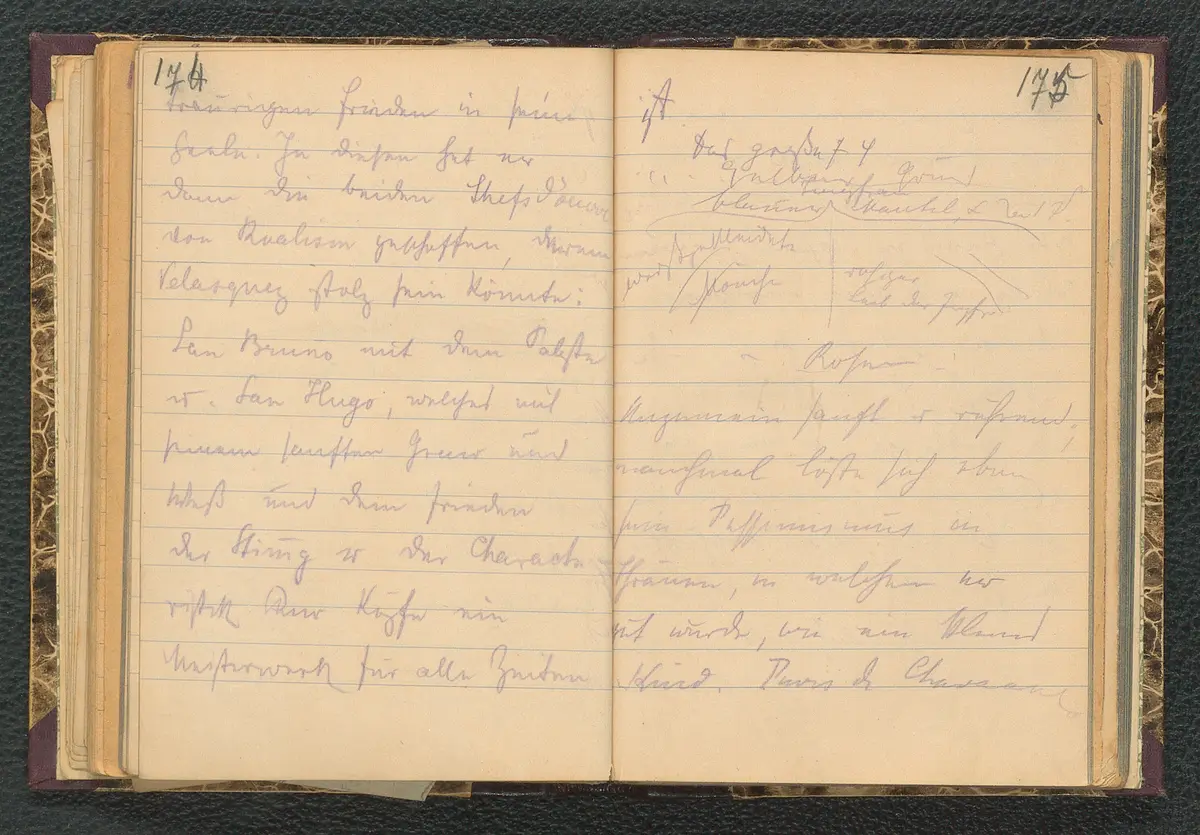 174
traurigen Frieden in sein
Seele. In diesen hat er
dann die beiden Chefsdöuvre
von Realism geschaffen, darum
Velasquez stolz sein könnte:
San Bruno mit dem Pabste
u. San Hugo, welches mit
seinem sanften Grau und
Weiß und dem Frieden
der Stimg u der Characte
ristik der Köpfe ein
Meisterwerk für alle Zeiten
175
ist
Das große
Gelber Grund
blauer Mantel,
weißgekleidete
Mönche
rosiger
Rosen
Ungemein sanft u rührend,
manchmal löste sich eben
sein Pessimismus in
Thränen, in welchen er
gut wurde, wie ein
Kind. Puvis de Chavanne